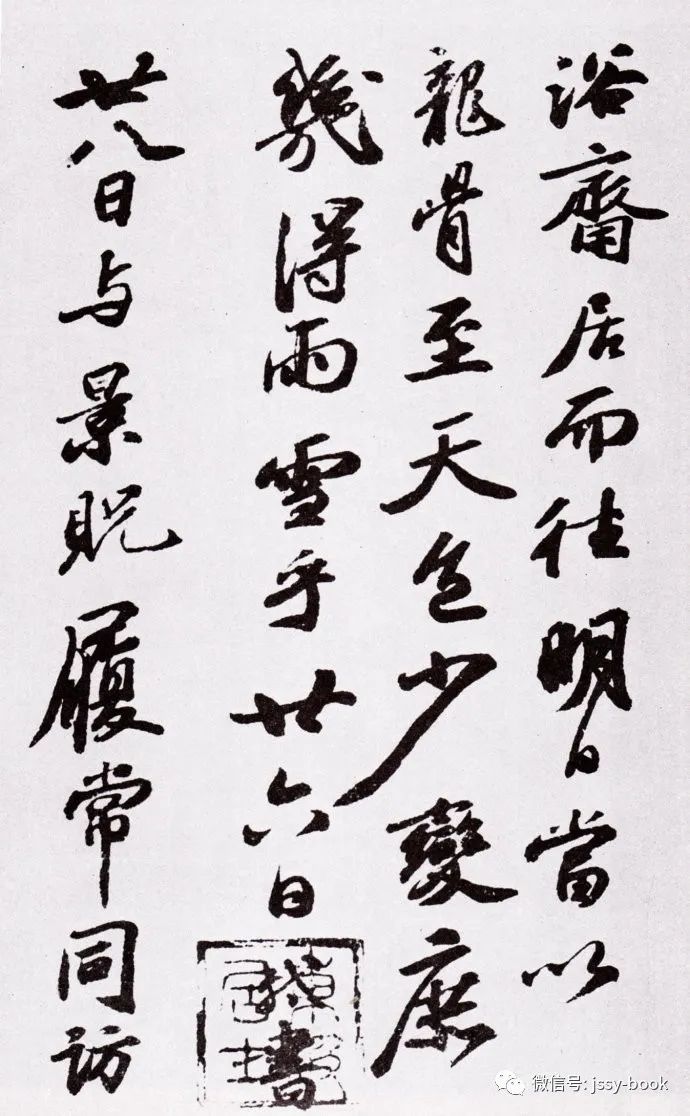 浴齋居而往明日當以
龍骨至天色少變庶
幾得雨雪乎廿六日書
廿八日与景貺履常同訪
微信号: jssy-book